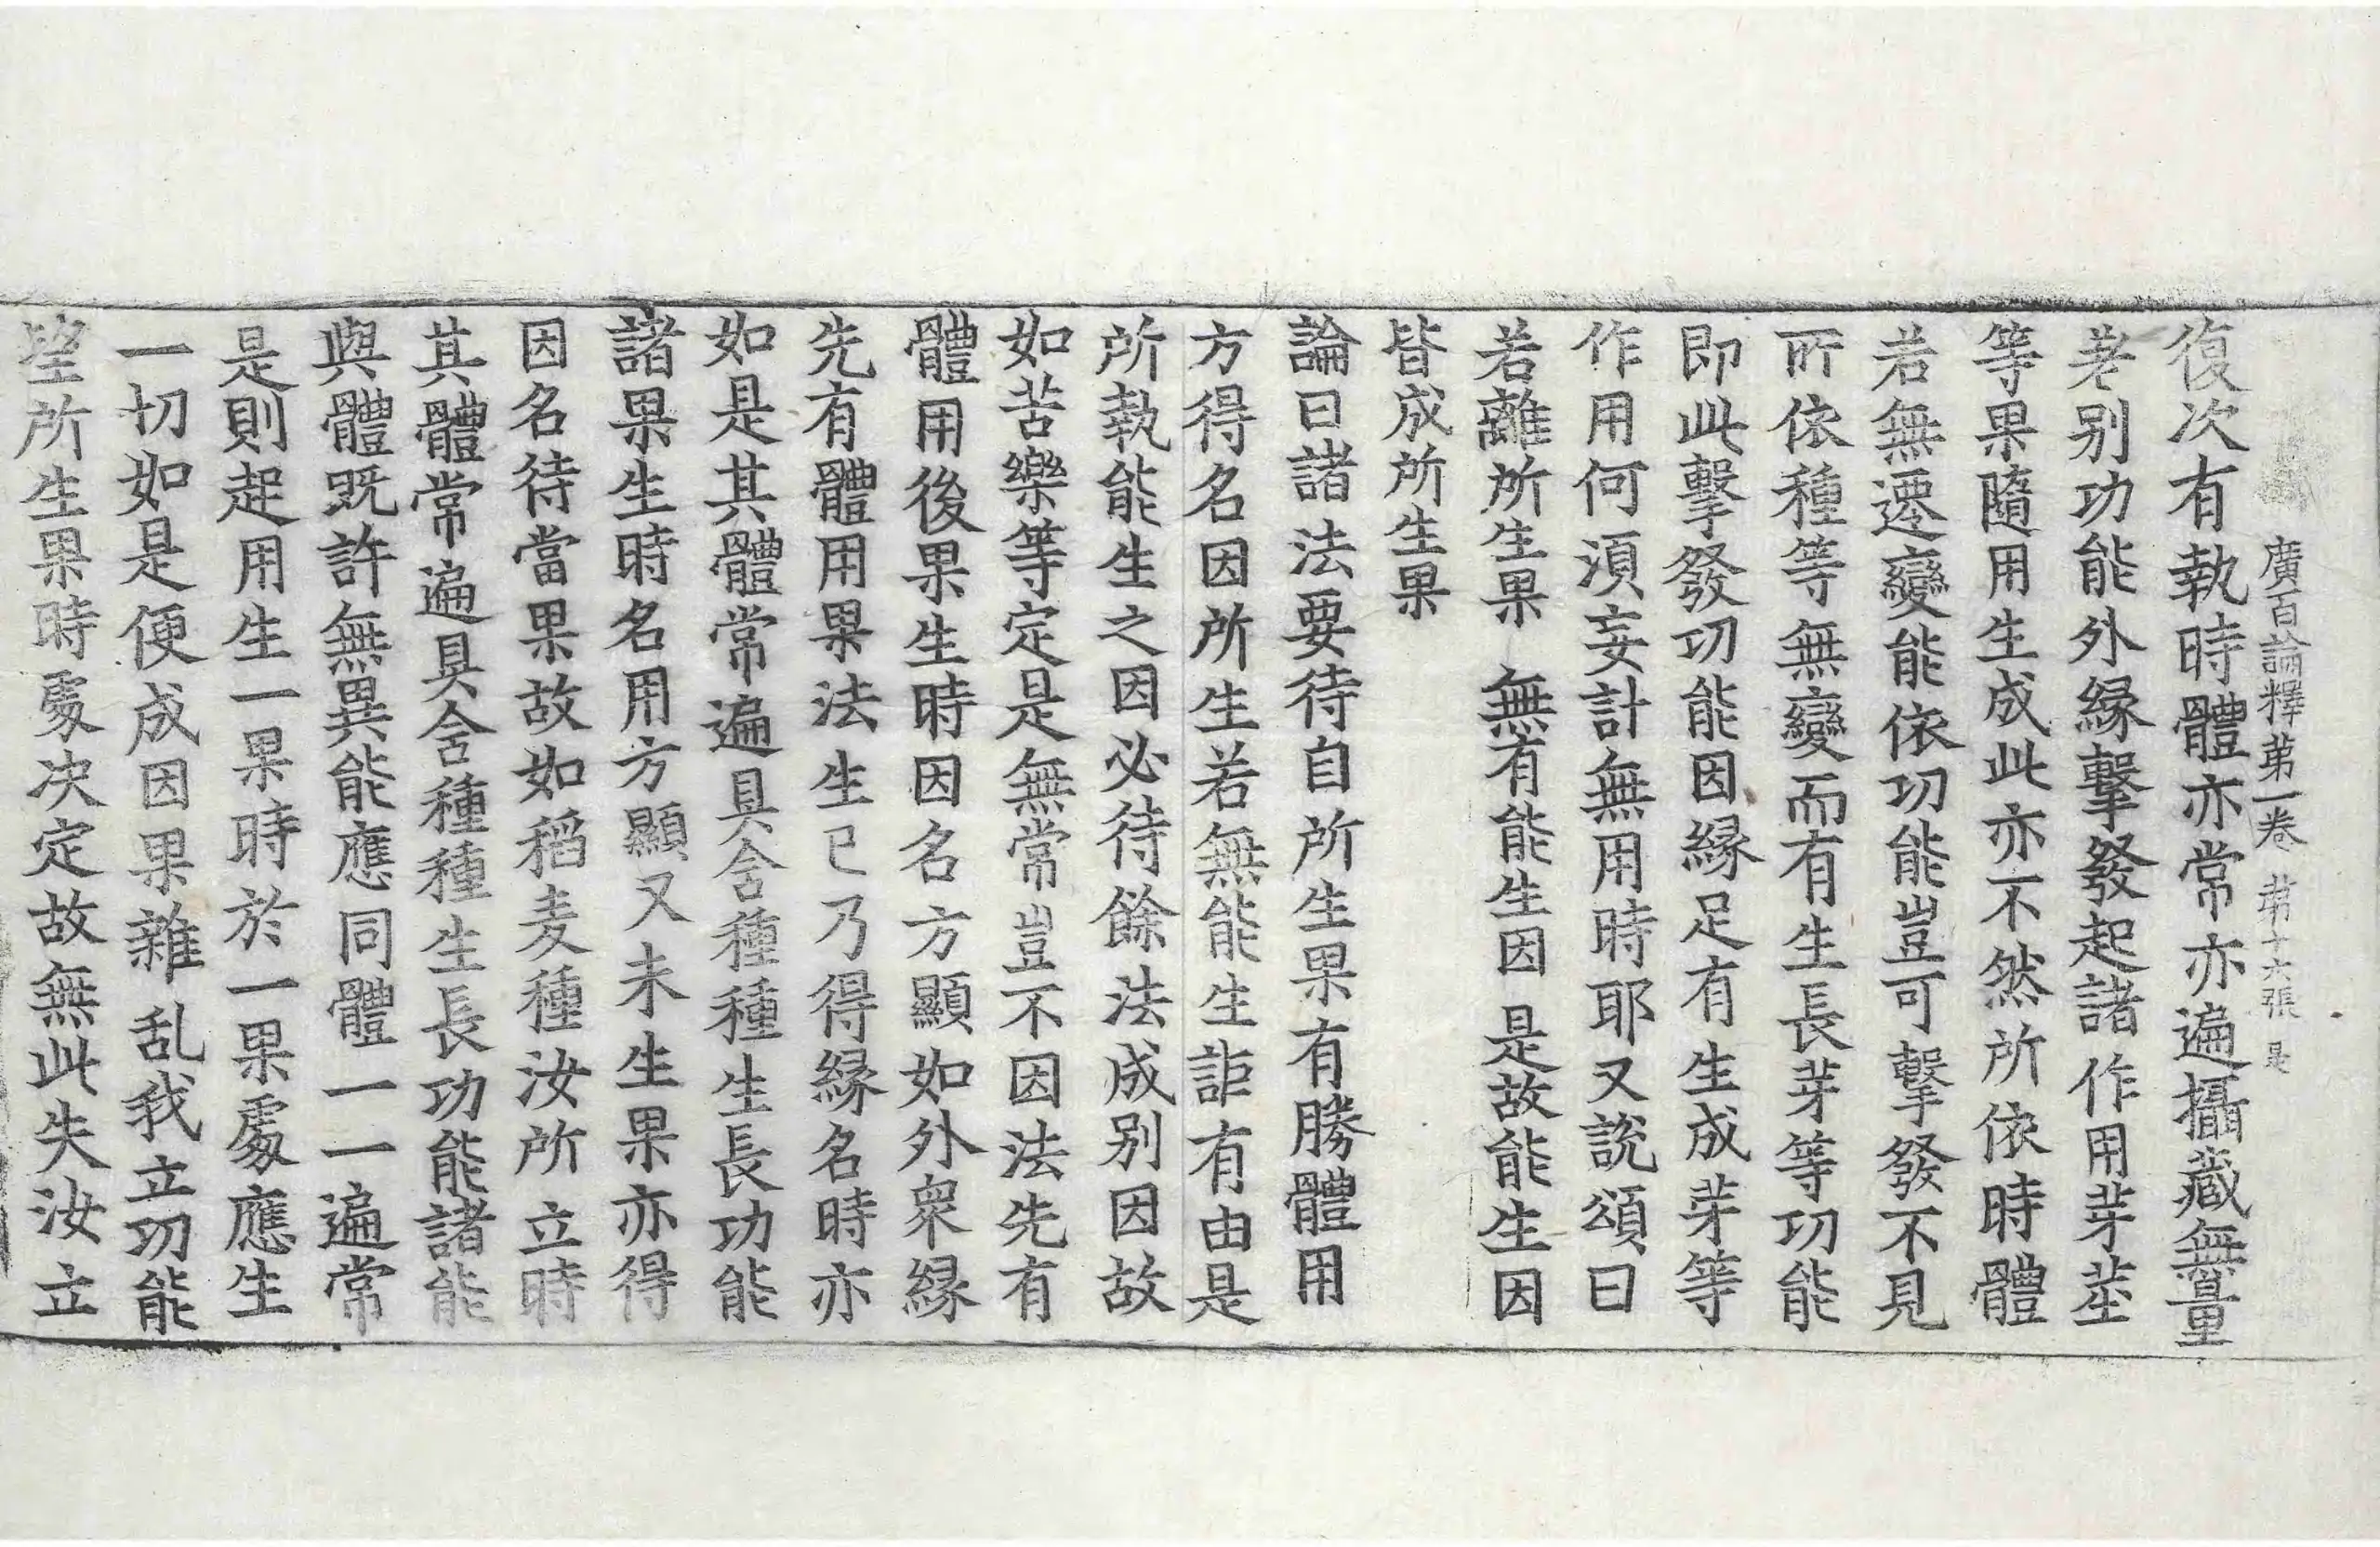 廣百論釋第一卷 第十六張 是
復次有執時體亦常亦遍攝藏無量
差别功能外緣擊發起諸作用芽莖
等果隨用生成此亦不然所依時體
若無遷變能依功能豈可擊發不見
所依種等無變而有生長芽等功能
即此擊發功能因緣足有生成芽等
作用何須妄計無用時耶又說頌曰
若離所生果 無有能生因 是故能生因
皆成所生果
論曰諸法要待自所生果有勝體用
方得名因所生若無能生詎有由是
所執能生之因必待餘法成别因故
如苦樂等定是無常豈不因法先有
體用後果生時因名方顯如外衆緣
先有體用果法生已乃得緣名時亦
如是其體常遍具含種種生長功能
諸果生時名用方顯又未生果亦得
因名待當果故如稻麦種汝所立時
其體常遍具含種種生長功能諸能
與體既許無異能應同體一一遍常
是則起用生一果時於一果處應生
一切如是便成因果雜乱我立功能
望所生果時處决定故無此失汝立